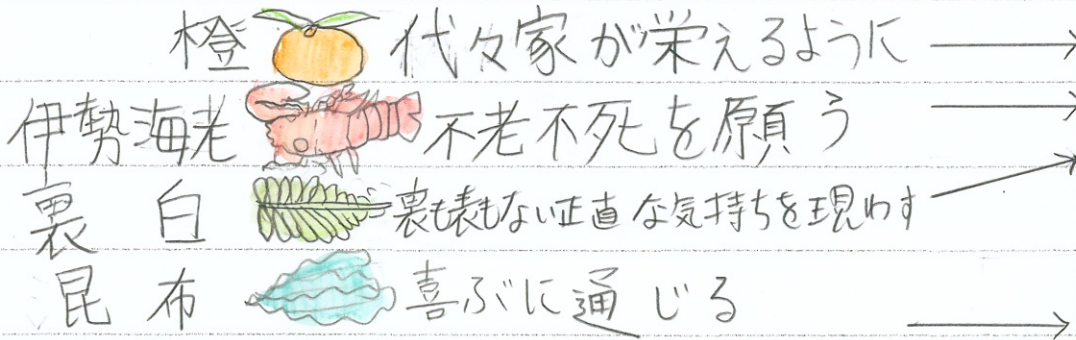 橙 代々家が栄えるように
伊勢海老 不老不死を願う
裏白 裏も表もない正直な気持ちを現わす
昆布 喜ぶに通じる